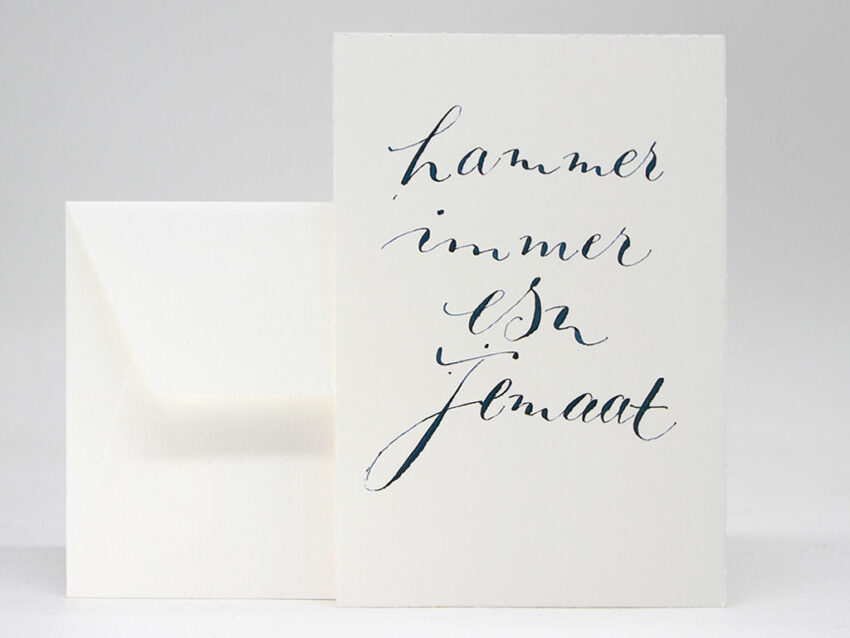 hammer
immer
esu
jemaat